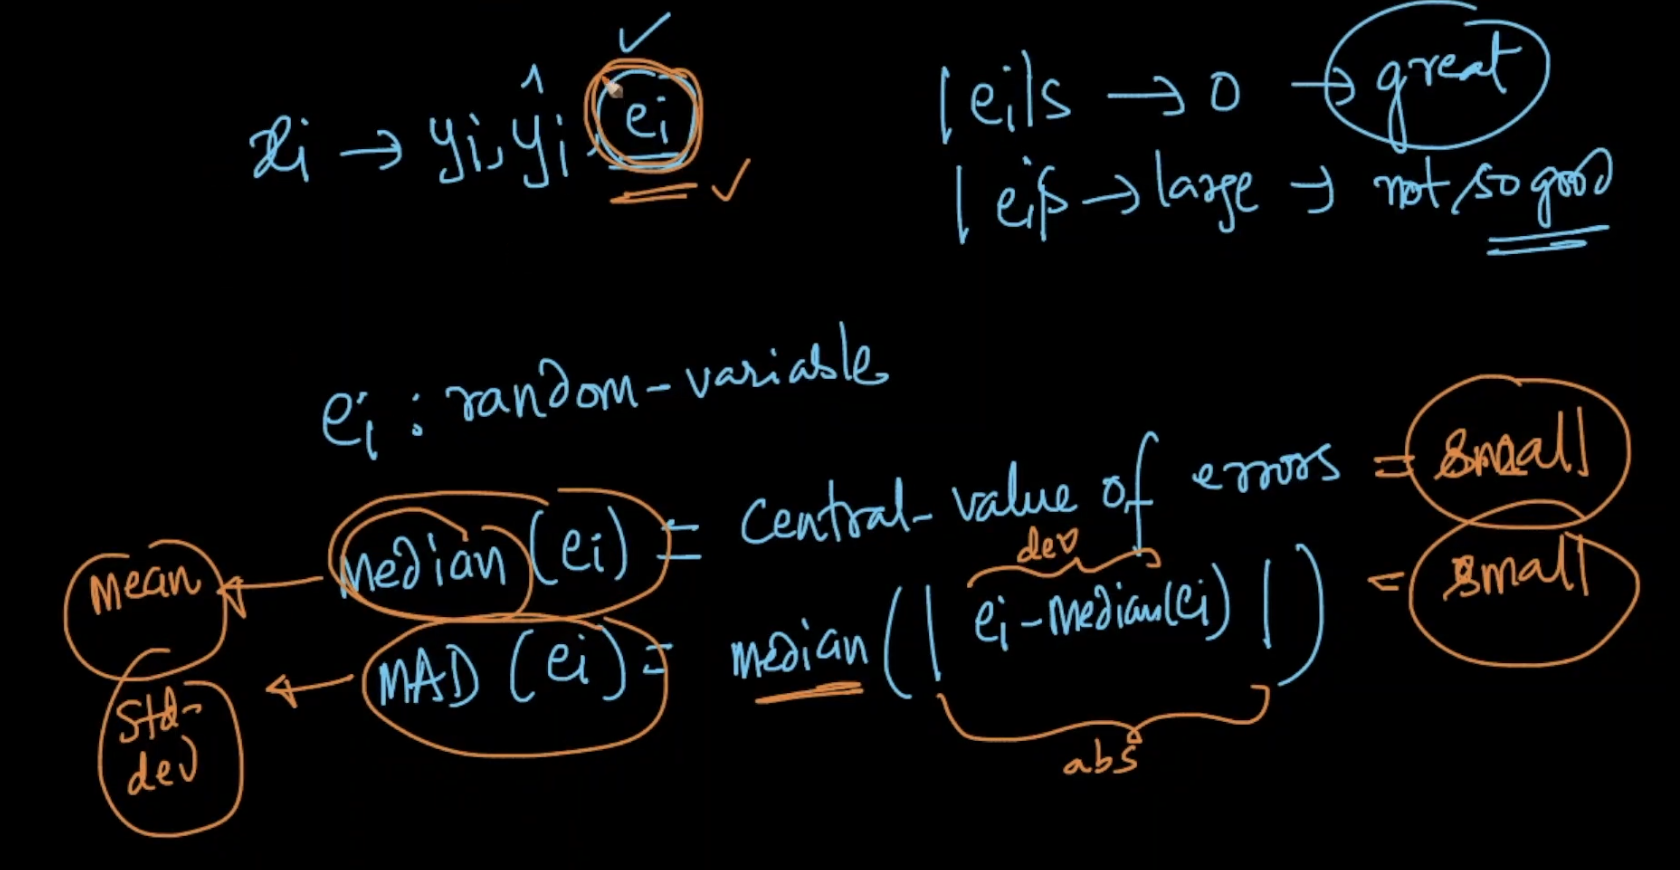 xi → yi, ŷi, ei
|ei|s → 0 → great
|ei|s → large → not so good
ei : random-variable
mean ← median (ei) = central-value of errors = small
std-dev ← MAD (ei) = median (| ei - median(ei) |) = small
dev
abs